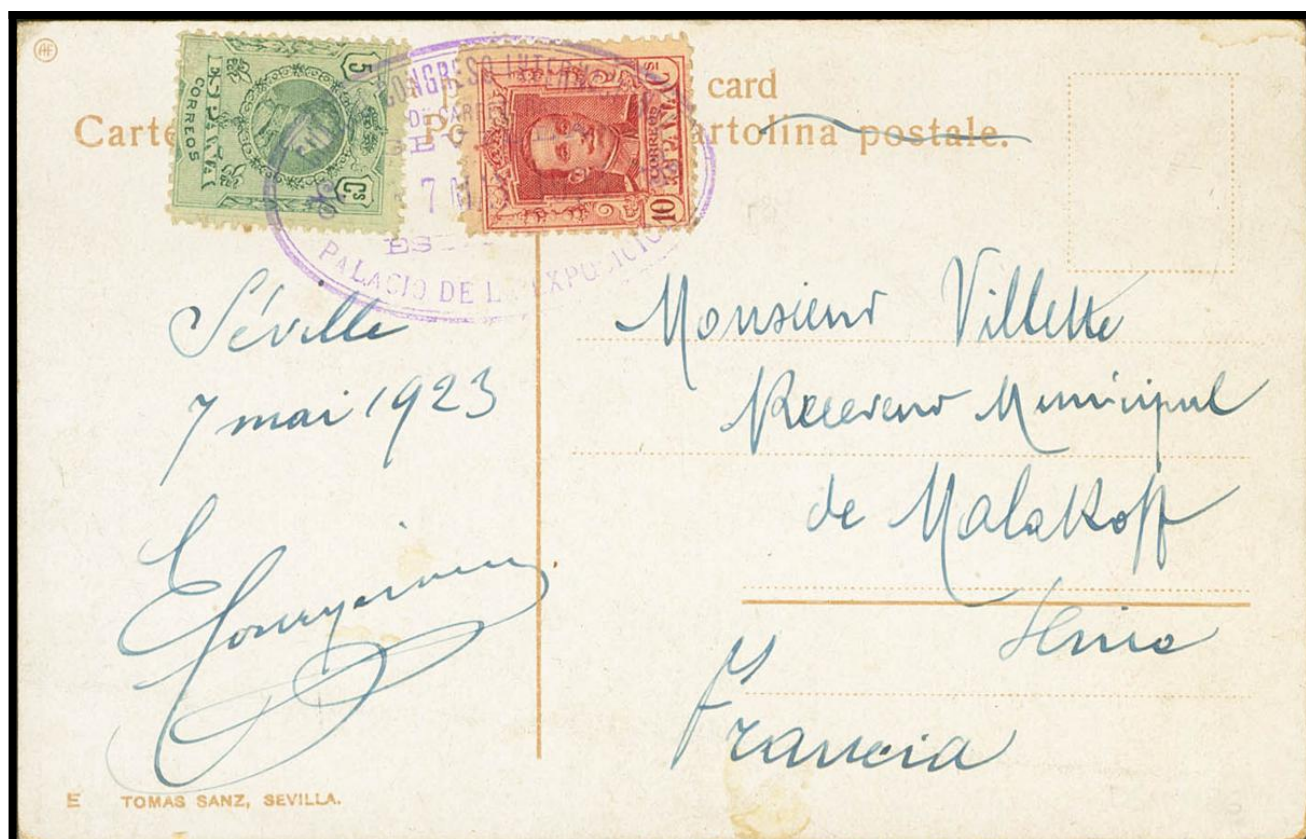 AF
card
Carte Po artolina postale.
5 Cs
ESPAÑA
CORREOS
Cs
10
CORREOS
ESPAÑA
CONGRESO
DE CARRE
7 M
ES
PALACIO DE L EXPOSICIO
Séville
7 mai 1923
Monsieur Villette
Receveur Municipal
de Malakoff
Seine
Francia
E TOMAS SANZ, SEVILLA.